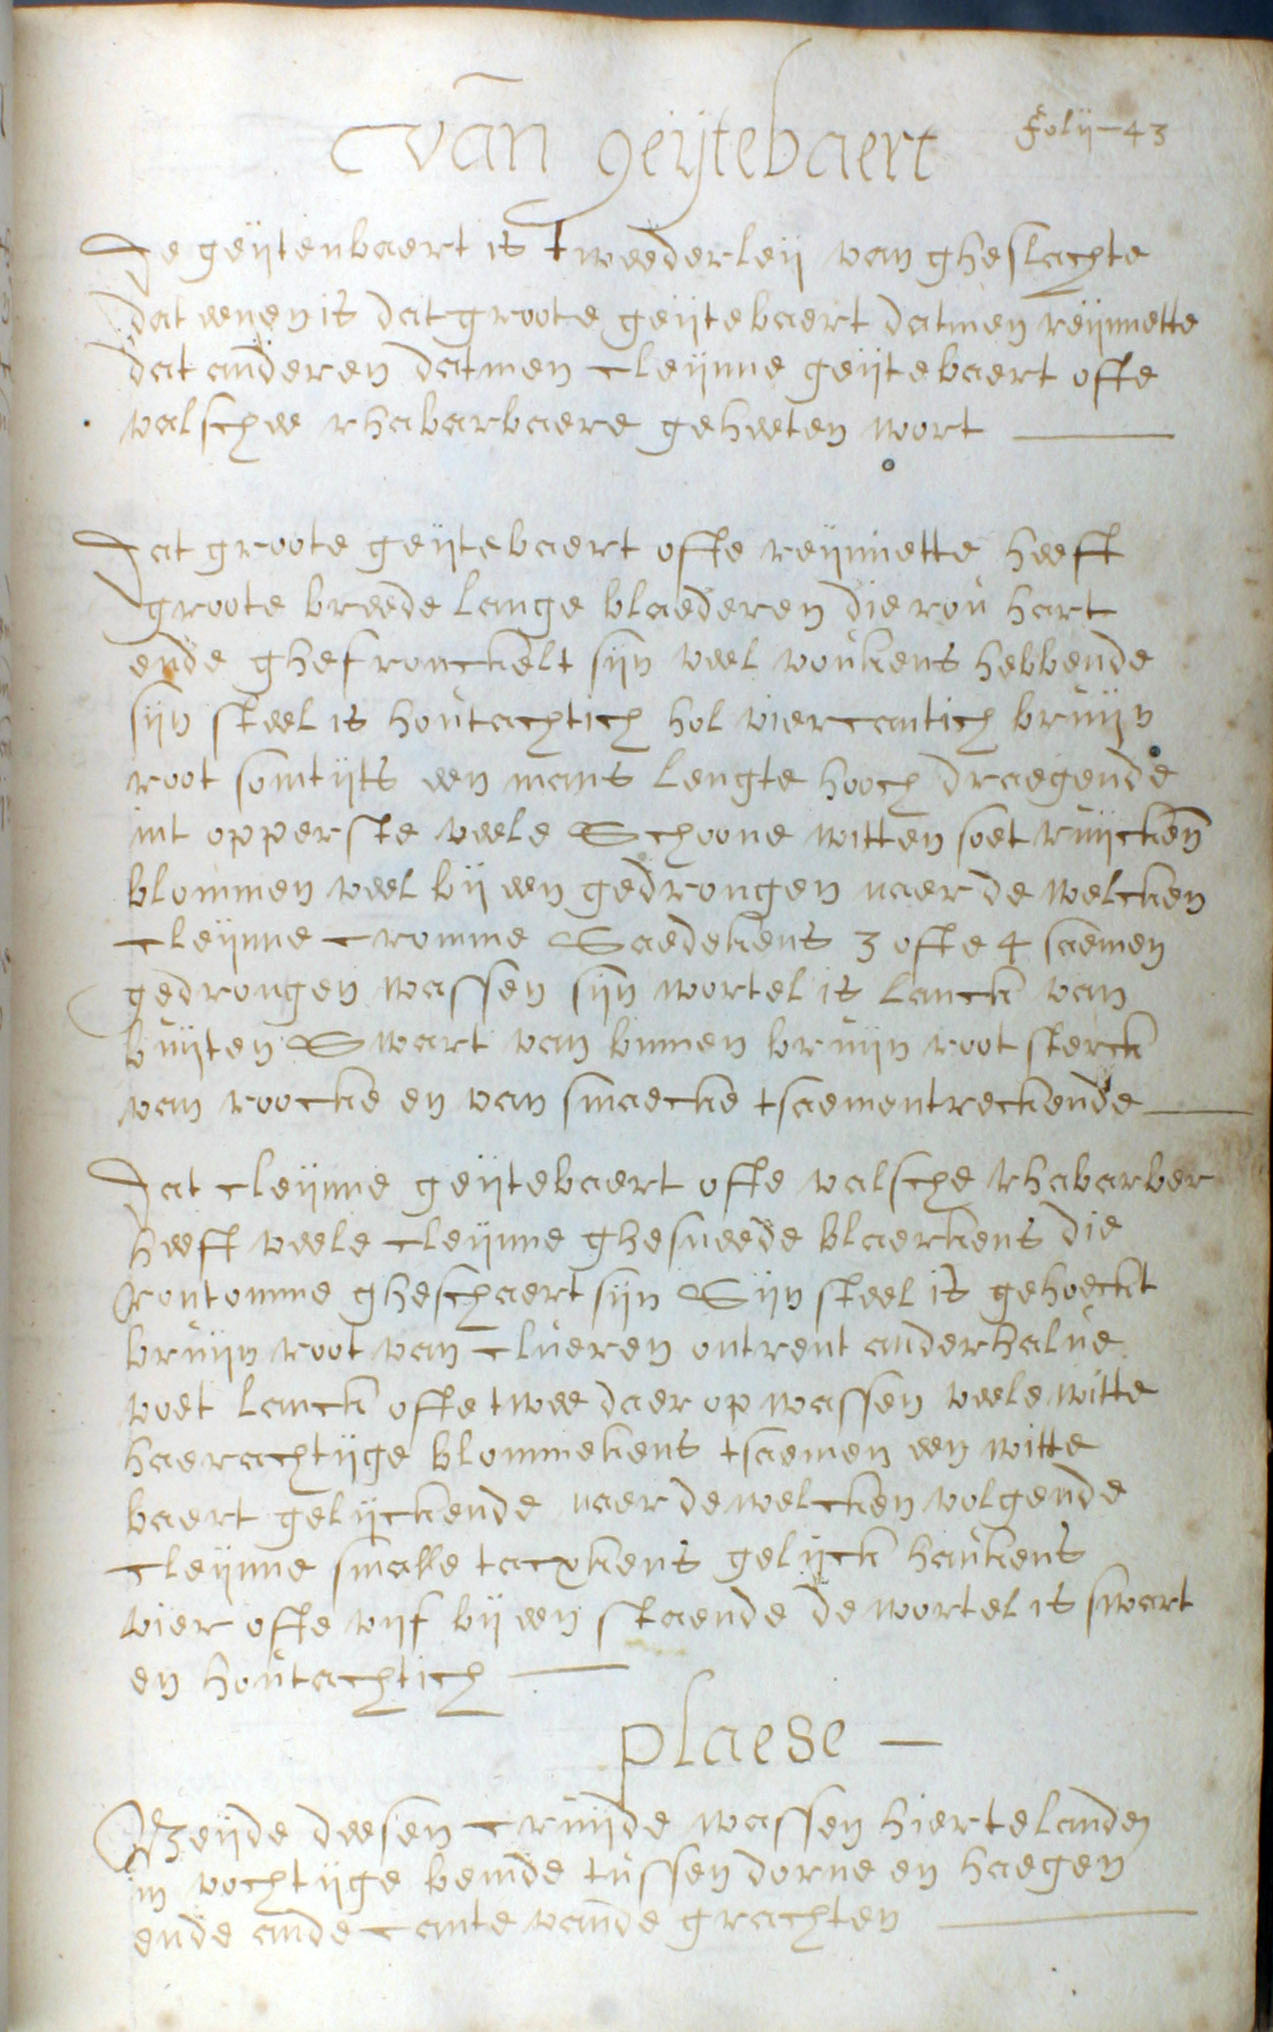 van geijtebaert
Folij-43
De geijtenbaert is tweederleij van gheslachte
dat eenen is dat groote geijtebaert datmen reijnnette
dat anderen datmen cleijnne geijtebaert ofte
valschee rhabarbaere geheeten wort
Dat groote geijtebaert ofte reijnnette heeft
groote breede lange blaederen die rou hart
ende ghefronckelt sijn veel voukens hebbende
sijn steel is houtachtich hol viercantich bruijn
root somtijts een mans lengte hooch draegende
int opperste veele Schoone witten soet ruijcken
blommen veel bij een gedrongen naer de welcken
cleijnne cromme Saedekens 3 ofte 4 saemen
gedrongen wassen sijn wortel is lanck van
buijten Swart van binnen bruijn root sterck
van roocke en van smaecke tsaementreckende
Dat cleijnne geijtebaert ofte valsche rhabarber
heeft veele cleijnne ghesneede blaerkens die
rontomme gheschaert sijn Sijn steel is gehoeckt
bruijn root van clueren ontrent anderhalve
voet lanck ofte twee daer op wassen veele witte
haerachtijge blommekens tsaemen een witte
baert gelijckende naer de welcken volgende
cleijnne smalle tacxkens gelijck haukens
vier ofte vijf bij een staende de wortel is swart
en houtachtich
plaese
Beijde deesen cruijde wassen hier te landen
in vochtijge bemde tussen dorne en haegen
ende ande cante vande grachten